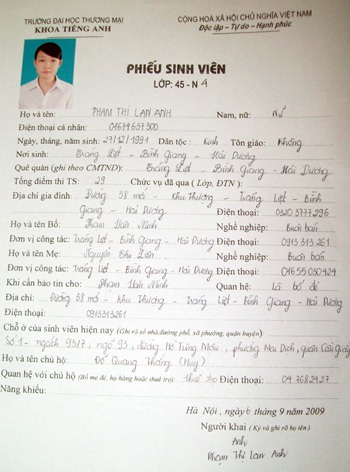 TRƯỜNG ĐẠI HỌC THƯƠNG MẠI
KHOA TIẾNG ANH
CỘNG HOÀ XÃ HỘI CHỦ NGHĨA VIỆT NAM
Độc lập - Tự do - Hạnh phúc
PHIẾU SINH VIÊN
LỚP: 45 - N4
Họ và tên: PHẠM THỊ LAN ANH Nam, nữ: Nữ
Điện thoại cá nhân: 01674637300
Ngày, tháng, năm sinh: 27/12/1991 Dân tộc: Kinh Tôn giáo: Không
Nơi sinh: Tráng Liệt - Bình Giang - Hải Dương
Quê quán (ghi theo CMTND): Tráng Liệt - Bình Giang - Hải Dương
Tổng điểm thi TS: 29 Chức vụ đã qua (Lớp, ĐTN):
Địa chỉ gia đình: Đường 38 mới - Khu Thượng - Tráng Liệt - Bình
Giang - Hải Dương Điện thoại: 0320 3777 296
Họ và tên Bố: Phạm Nghề nghiệp: Buôn bán
Đơn vị công tác: Tráng Liệt - Bình Giang - Hải Dương Điện thoại: 0915 313 261
Họ và tên Mẹ: Nguyễn Nghề nghiệp: Buôn bán
Đơn vị công tác: Tráng Liệt - Bình Giang - Hải Dương Điện thoại: 01655 030 424
Khi cần báo tin cho: Phạm Quan hệ: Là bố đẻ
Địa chỉ: Đường 38 mới - Khu Thượng - Tráng Liệt - Bình Giang - Hải Dương
Điện thoại: 0915313261
Chỗ ở của sinh viên hiện nay (Ghi rõ số nhà, đường phố, xã phường, quận huyện)
Số 1 - ngách 93/7, ngõ 93, đường Hồ Tùng Mậu, phường Mai Dịch, quận Cầu Giấy
Họ và tên chủ hộ: Đỗ Quang Thắng (Huy)
Quan hệ với chủ hộ (Bố mẹ đẻ, họ hàng hoặc thuê trọ) thuê trọ Điện thoại: 04.7682427
Năng khiếu:
Hà Nội, ngày 6 tháng 9 năm 2009
Người khai (Ký và ghi rõ họ tên)
Anh
Phạm Thị Lan Anh